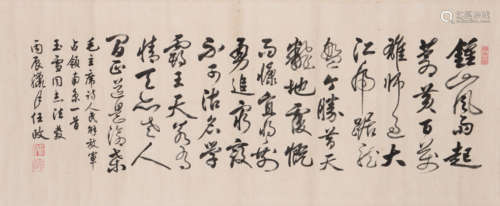 鍾山風雨起
蒼黃百萬
雄師過大
江虎踞龍
盤今勝昔天
翻地覆慨
而慷宜將剩
勇追窮寇
不可沽名學
霸王天若有
情天亦老人
間正道是滄桑
毛主席詩人民解放軍
占領南京一首
玉雪同志法教
丙辰臘月任政